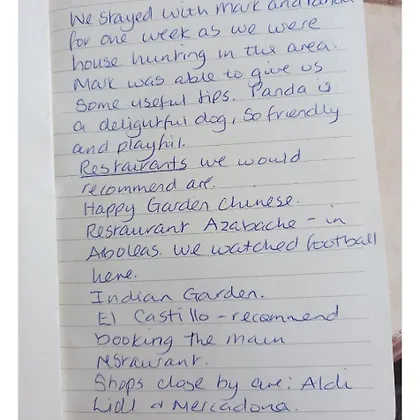 We stayed with Mark and Panda
for one week as we were
house hunting in this area.
Mark was able to give us
some useful tips. Panda is
a deligutful dog, so friendly
and playful.
Restaurants we would
recommend are.
Happy Garden Chinese.
Restaurant Azabache - in
Arboleas. We watched football
here.
Indian Garden.
El Castillo - recommend
booking the main
restaurant.
Shops close by are: Aldi
Lidl & Mercadona.